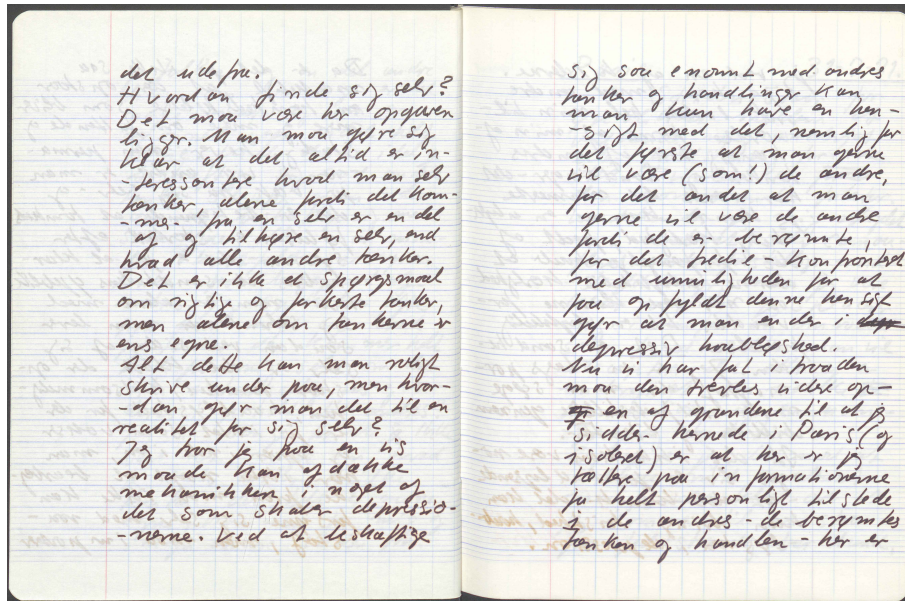 det udefra.
Hvordan finde sig selv?
Det maa være her opgaven
ligger. Man maa gøre sig
klar at det altid er in-
-teressantere hvad man selv
tænker, alene fordi det kom-
-mer fra en selv er en del
af og tilhøre en selv, end
hvad alle andre tænker.
Det er ikke et spørgsmaal
om rigtige og forkerte tanker,
men alene om tankerne er
ens egne.
Alt dette kan man roligt
skrive under paa, men hvor-
-dan gør man det til en
realitet for sig selv?
Jeg tror jeg paa en vis
maade kan afdække
mekanikken i noget af
det som skaber depressio-
-nerne. Ved at beskæftige
sig saa enormt med andres
tanker og handlinger kan
man kun have en hen-
-sigt med det, nemlig for
det første at man gerne
vil være (som!) de andre,
for det andet at man
gerne vil være de andre
fordi de er berømte,
for det tredie - konfronteret
med umuligheden for at
faa opfyldt denne hensigt
gør at man ender i
depressiv haabløshed.
Nu vi har fat i traaden
maa den trævles videre op -
en af grundene til at jeg
sidder hernede i Paris (og
isoleret) er at her er jeg
tættere paa informationerne
ja helt personligt tilstede
i de andres - de berømtes
tanken og handlen - her er